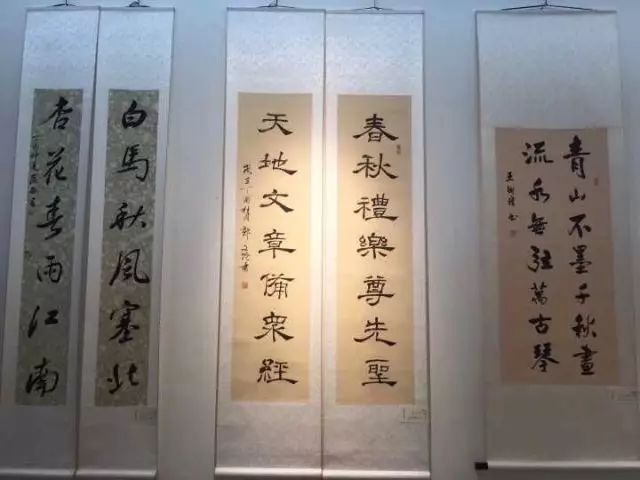 青山不墨千秋畫
流水無弦萬古琴
春秋禮樂尊先聖
天地文章備衆經
白馬秋風塞北
杏花春雨江南